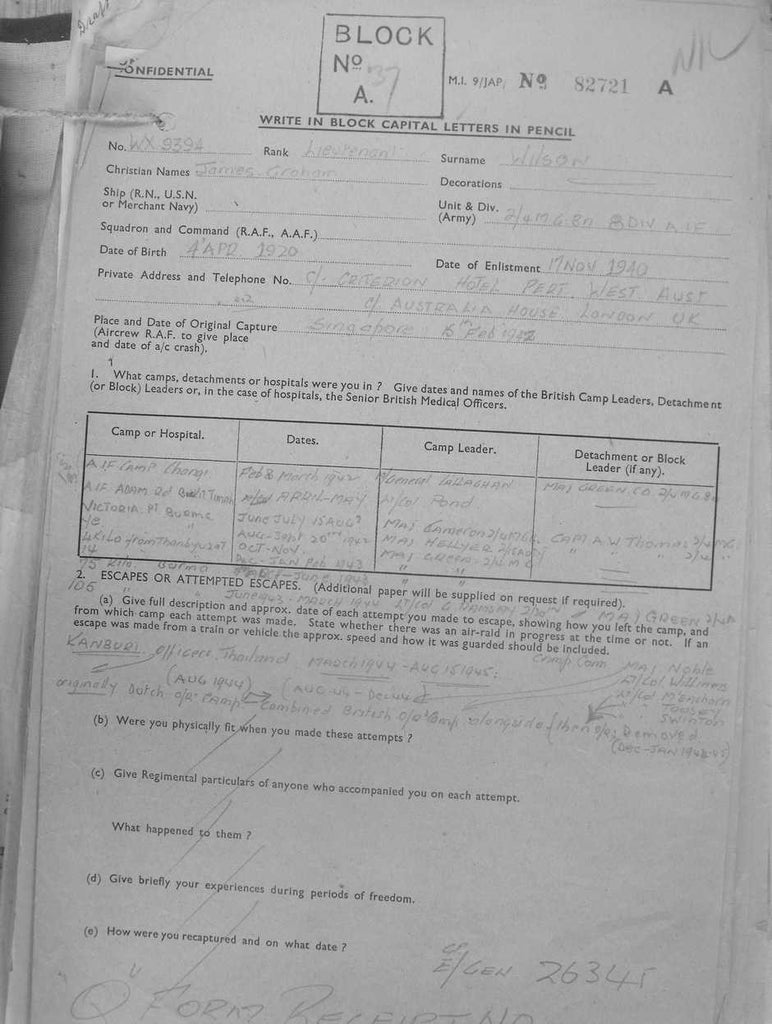 Draft
CONFIDENTIAL
BLOCK
No 37
A.
M.I. 9/JAP/ No 82721 A
NIL
WRITE IN BLOCK CAPITAL LETTERS IN PENCIL
No. WX 9394 Rank Lieutenant Surname WILSON
Christian Names James Graham Decorations
Ship (R.N., U.S.N.
or Merchant Navy)
Unit & Div.
(Army) 2/4 M G Bn 8 DIV A I F
Squadron and Command (R.A.F., A.A.F.)
Date of Birth 4 APR 1920 Date of Enlistment 17 NOV 1940
Private Address and Telephone No. C/. CRITERION HOTEL PERT. WEST AUST
C/. AUSTRALIA HOUSE. LONDON UK
Place and Date of Original Capture Singapore 15th Feb 1942
(Aircrew R.A.F. to give place
and date of a/c crash).
1. What camps, detachments or hospitals were you in ? Give dates and names of the British Camp Leaders, Detachment
(or Block) Leaders or, in the case of hospitals, the Senior British Medical Officers.
Camp or Hospital. Dates. Camp Leader. Detachment or Block
Leader (if any).
AIF CAMP Changi Feb & March 1942 General CALLAGHAN MAJ GREEN CO 2/4 MG Bn
AIF ADAM Rd Bukit Timah APRIL-MAY Lt/Col Pond
VICTORIA Pt BURMA JUNE JULY 15 AUG MAJ Cameron 2/4 MG CAPT A W Thomas 2/4 MG
Ye AUG-Sept 20th 1942 MAJ HELLYER " " 2/4 "
4 Kilo from Thanbyuzat OCT-NOV. MAJ GREEN 2/4 MG
14 DEC-JAN Feb 1943 " "
75 Kilo. Burma
2. ESCAPES OR ATTEMPTED ESCAPES. (Additional paper will be supplied on request if required).
105 JUNE 1943 - MARCH 1944 Lt/Col G RAMSAY MAJ GREEN 2/4
(a) Give full description and approx. date of each attempt you made to escape, showing how you left the camp, and
from which camp each attempt was made. State whether there was an air-raid in progress at the time or not. If an
escape was made from a train or vehicle the approx. speed and how it was guarded should be included.
KANBURI Officers, Thailand MARCH 1944 - AUG 15 1945: Camp Com. MAJ Noble
(AUG 1944) (AUG 44 - Dec 44) Lt/Col Williams
originally Dutch o/r camp Combined British o/r Camp alongside then o/rs Removed
Lt/Col M'Eachern
" Toosey
" SWINTON
(DEC-JAN 1944-45)
(b) Were you physically fit when you made these attempts ?
(c) Give Regimental particulars of anyone who accompanied you on each attempt.
What happened to them ?
(d) Give briefly your experiences during periods of freedom.
(e) How were you recaptured and on what date ?
CP
E/GEN 26345
"Q" FORM RECEIPT NO